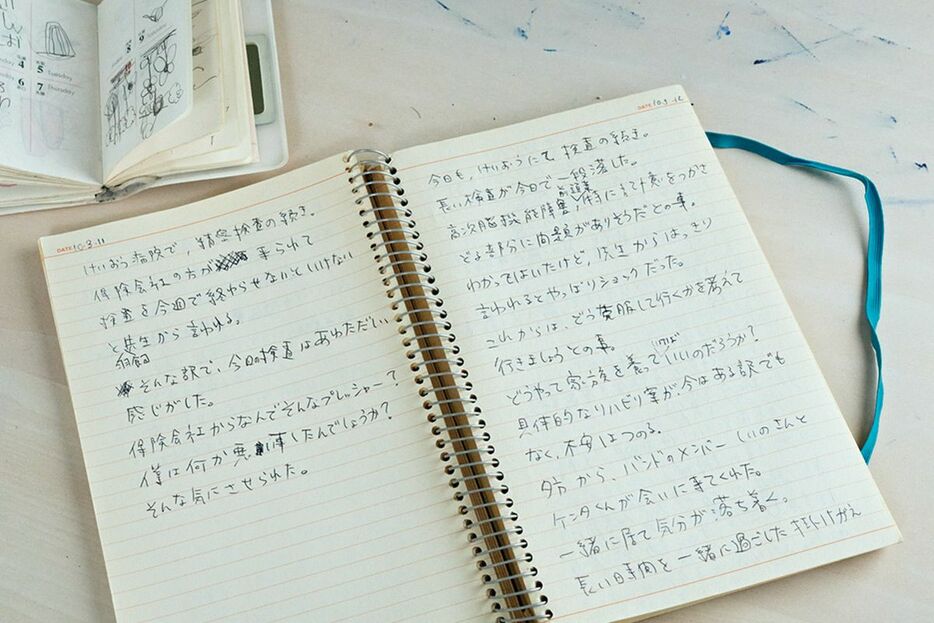 DATE 10.3.11
けいおう病院で、精密検査の続き。
保険会社の方が 来られて
検査を今週で終わらせないといけない
と先生から言われる。
そんな訳で、今日の検査はあわただしい
感じがした。
保険会社からなんでそんなプレッシャー?
僕は何か悪い事したんでしょうか?
そんな気にさせられた。
DATE 10.3.12
今日も、けいおうにて検査の続き。
長い検査が今日で一段落した。
高次脳機能障害、特に注意をつかさ
どる部分に問題がありそうだとの事。
わかってはいたけど、先生からはっきり
言われるとやっぱりショックだった。
これからは、どう克服して行くかを考えて
行きましょうとの事。
どうやって家族を養っていけばいいのだろうか?
具体的なリハビリ案が今はある訳でも
なく、不安はつのる。
夕方から、バンドのメンバー しいのさんと
ケンタくんが会いに来てくれた。
一緒に居て気分が落ち着く。
長い時間を一緒に過ごした
4
5
Tuesday
6
7
Thursday
8
9